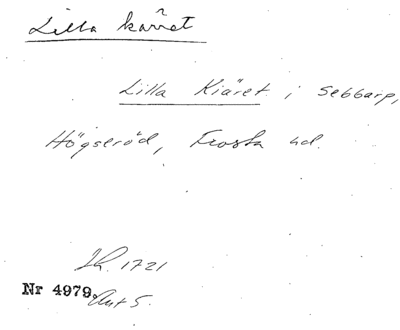 Lilla kärret
Lilla Kiäret i Sebbarp,
Högseröd, Frosta hd.
Lh. 1721
Nr 4979. Akt 5.